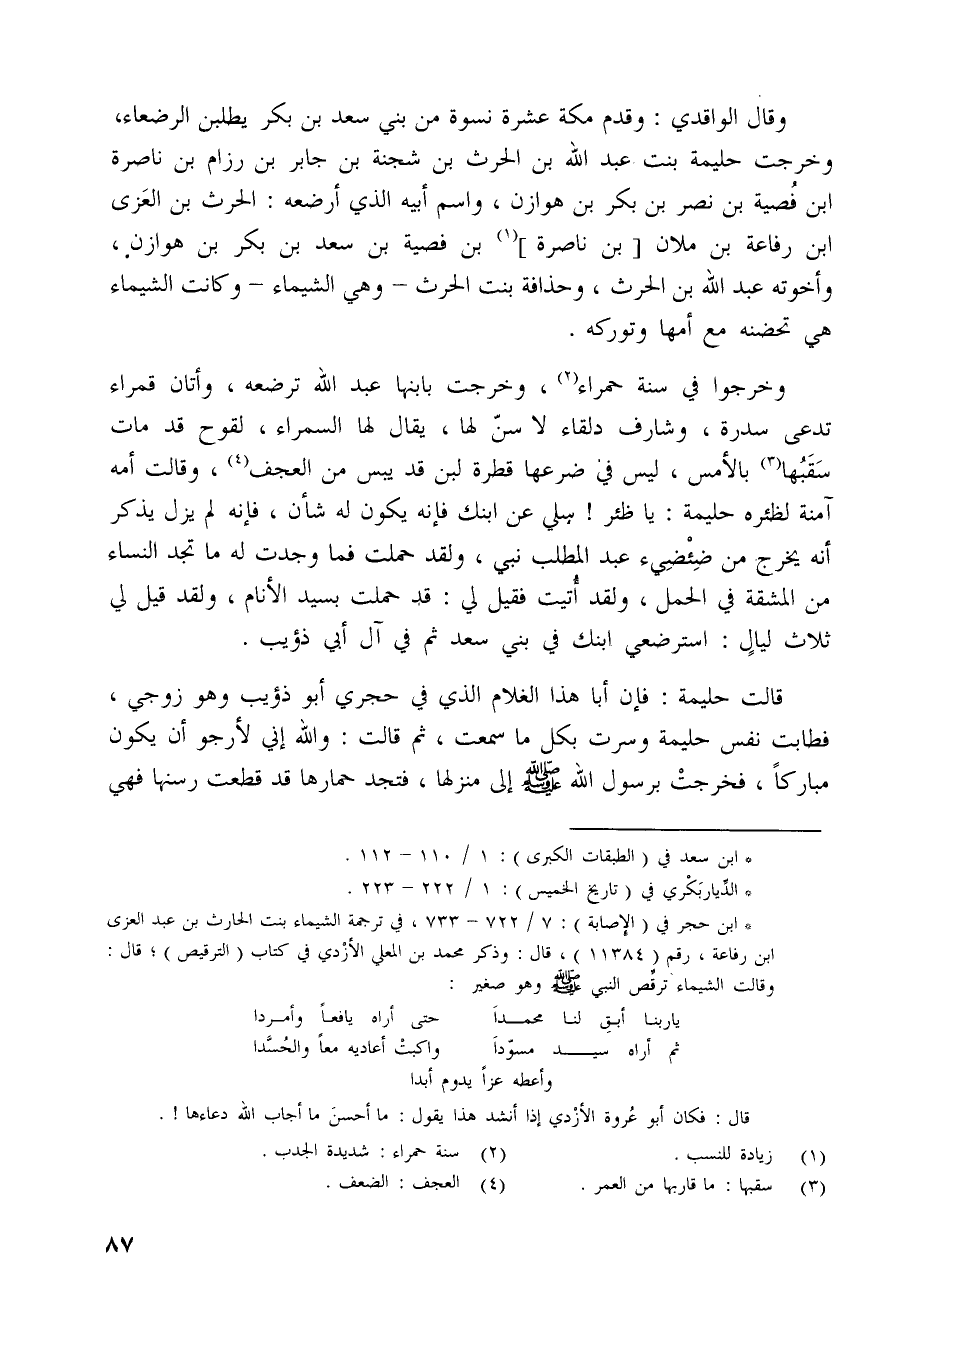 وقال الواقدي : وقدم مكة عشرة نسوة من بني سعد بن بكر يطلبن الرضعاء،
وخرجت حليمة بنت عبد الله بن الحرث بن شجنة بن جابر بن رزام بن ناصرة
ابن فُصية بن نصر بن بكر بن هوازن ، واسم أبيه الذي أرضعه : الحرث بن العَزى
ابن رفاعة بن ملان [ بن ناصرة ](١) بن فصية بن سعد بن بكر بن هوازن ،
وأخوته عبد الله بن الحرث ، وحذافة بنت الحرث – وهي الشيماء – وكانت الشيماء
هي تحضنه مع أمها وتوركه .
وخرجوا في سنة حمراء(٢) ، وخرجت بابنها عبد الله ترضعه ، وأتان قمراء
تدعى سدرة ، وشارف دلقاء لا سنّ لها ، يقال لها السمراء ، لقوح قد مات
سَقَبُها(٣) بالأمس ، ليس في ضرعها قطرة لبن قد يبس من العجف(٤) ، وقالت أمه
آمنة لظئره حليمة : يا ظئر ! سلي عن ابنك فإنه يكون له شأن ، فإنه لم يزل يذكر
أنه يخرج من ضِئْضِيء عبد المطلب نبي ، ولقد حملت فما وجدت له ما تجد النساء
من المشقة في الحمل ، ولقد أُتيت فقيل لي : قد حملت بسيد الأنام ، ولقد قيل لي
ثلاث ليالٍ : استرضعي ابنك في بني سعد ثم في آل أبي ذؤيب .
قالت حليمة : فإن أبا هذا الغلام الذي في حجري أبو ذؤيب وهو زوجي ،
فطابت نفس حليمة وسرت بكل ما سمعت ، ثم قالت : والله إني لأرجو أن يكون
مباركاً ، فخرجتْ برسول الله ﷺ إلى منزلها ، فتجد حمارها قد قطعت رسنها فهي
* ابن سعد في ( الطبقات الكبرى ) : ١ / ١١٠ – ١١٢ .
* الدِّياربَكْري في ( تاريخ الخميس ) : ١ / ٢٢٢ – ٢٢٣ .
* ابن حجر في ( الإصابة ) : ٧ / ٧٢٢ – ٧٣٣ ، في ترجمة الشيماء بنت الحارث بن عبد العزى
ابن رفاعة ، رقم ( ١١٣٨٤ ) ، قال : وذكر محمد بن المعلي الأزْدي في كتاب ( الترقيص ) ؛ قال :
وقالت الشيماء ترقِّص النبي ﷺ وهو صغير :
ياربنا أبقِ لنا محمـداً حتى أراه يافعاً وأمـردا
ثم أراه سيـــد مسوّداً واكبتْ أعاديه معاً والحُسَّدا
وأعطه عزاً يدوم أبدا
قال : فكان أبو عُروة الأزْدي إذا أنشد هذا يقول : ما أحسنَ ما أجاب الله دعاءها ! .
(١) زيادة للنسب . (٢) سنة حمراء : شديدة الجدب .
(٣) سقبها : ما قاربها من العمر . (٤) العجف : الضعف .
٨٧